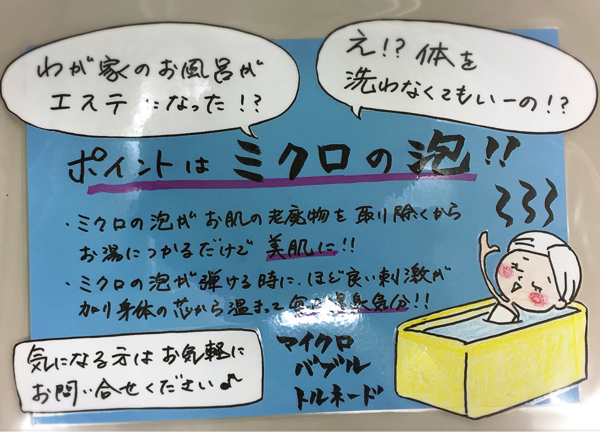 わが家のお風呂が
エステになった!?
え!? 体を
洗わなくてもいーの!?
ポイントは ミクロの泡!!
・ミクロの泡が お肌の老廃物を 取り除くから
お湯につかるだけで 美肌に!!
・ミクロの泡が弾ける時に、ほど良い刺激が
加り身体の芯から温まって 気分!!
気になる方はお気軽に
お問い合せください♪
マイクロ
バブル
トルネード